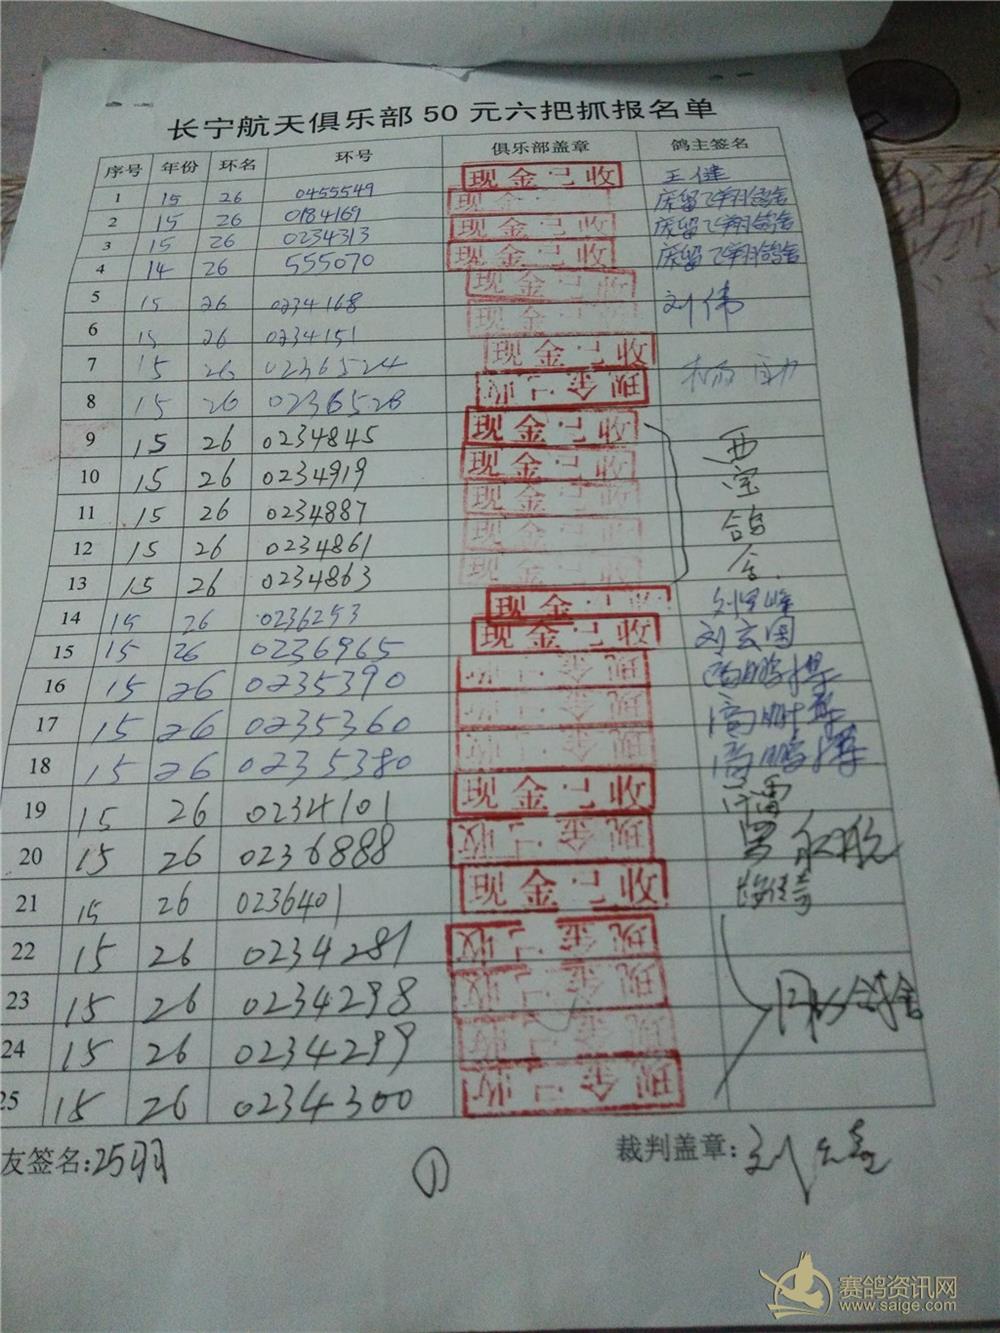 长宁航天俱乐部 50 元六把抓报名单
序号 年份 环名 环号 俱乐部盖章 鸽主签名
1 15 26 0455549 现金已收 王健
2 15 26 0184169 现金已收
3 15 26 0234313 现金已收
4 14 26 555070 现金已收
5 15 26 0234168 现金已收 刘伟
6 15 26 0234151 现金已收
7 15 26 0236524 现金已收
8 15 26 0236528 现金已收
9 15 26 0234845 现金已收
10 15 26 0234919 现金已收
11 15 26 0234887 现金已收 鸽
12 15 26 0234861 现金已收 舍
13 15 26 0234863 现金已收
14 15 26 0236253 现金已收
15 15 26 0236965 现金已收 刘玄国
16 15 26 0235390 现金已收
17 15 26 0235360 现金已收
18 15 26 0235380 现金已收
19 15 26 0234101 现金已收
20 15 26 0236888 现金已收
21 15 26 0236401 现金已收
22 15 26 0234281 现金已收
23 15 26 0234298 现金已收 鸽舍
24 15 26 0234299 现金已收
25 15 26 0234300 现金已收
友签名:25羽 ① 裁判盖章:
赛鸽资讯网
www.saige.com